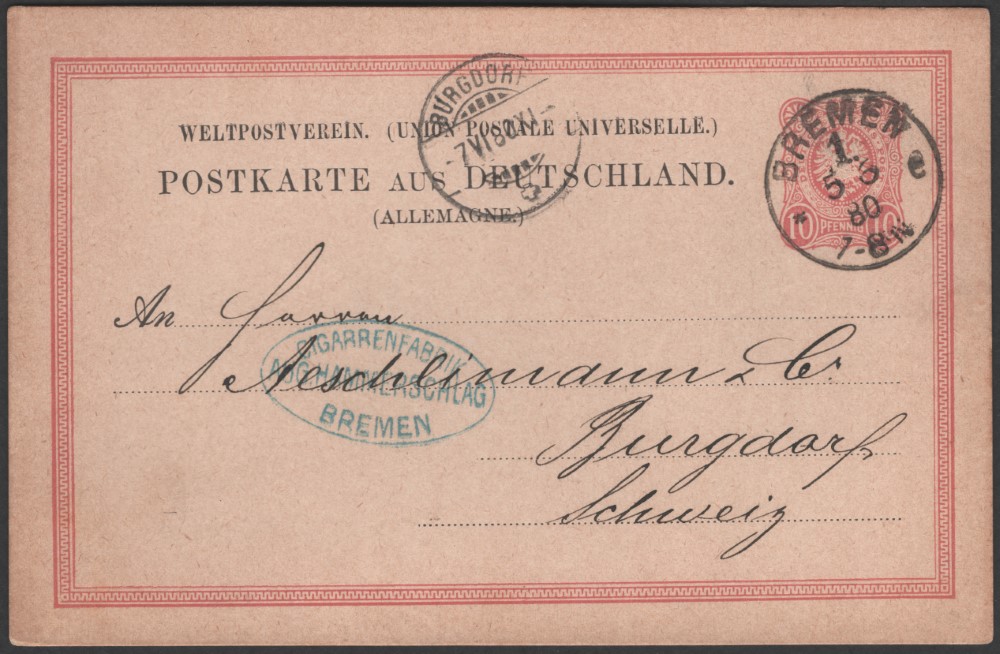 WELTPOSTVEREIN. (UNION POSTALE UNIVERSELLE.)
POSTKARTE AUS DEUTSCHLAND.
(ALLEMAGNE.)
BURGDORF
-7.VI.80.XI-
BREMEN
1.
5 6
80
7-8 N
e
10 PFENNIG 10
An Herren
Aeschlimann & Co.
Burgdorf
Schweiz
CIGARRENFABRIK
AUG. HAMMERSCHLAG
BREMEN